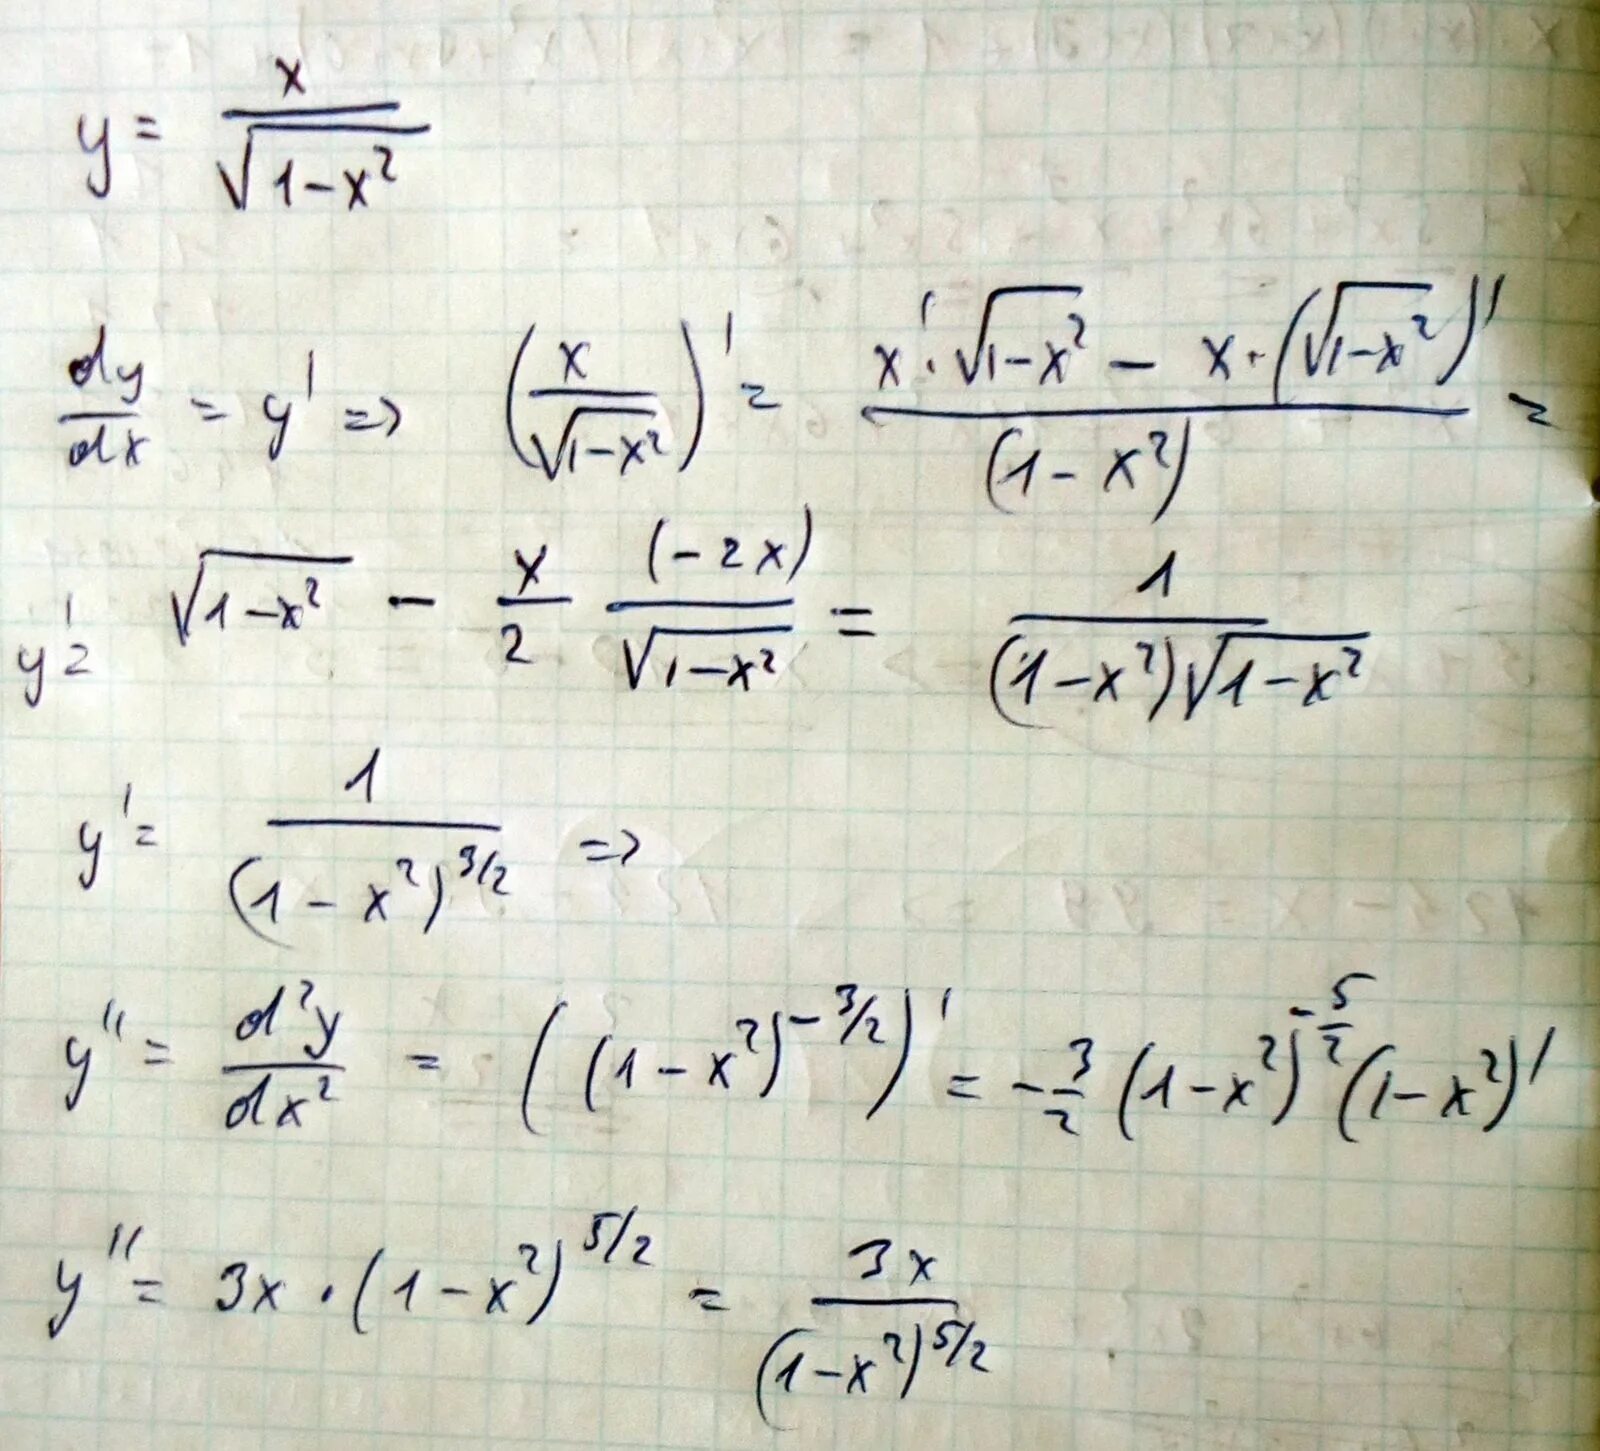 y = x / √(1-x²)
dy/dx = y' => (x / √(1-x²))' = (x' · √(1-x²) - x · (√(1-x²))') / (1-x²) =
y' = √(1-x²) - x/2 (-2x)/√(1-x²) = 1 / ((1-x²)√(1-x²))
y' = 1 / (1-x²)^(3/2) =>
y'' = d²y/dx² = ((1-x²)^(-3/2))' = -3/2 (1-x²)^(-5/2) (1-x²)'
y'' = 3x · (1-x²)^(5/2) = 3x / (1-x²)^(5/2)